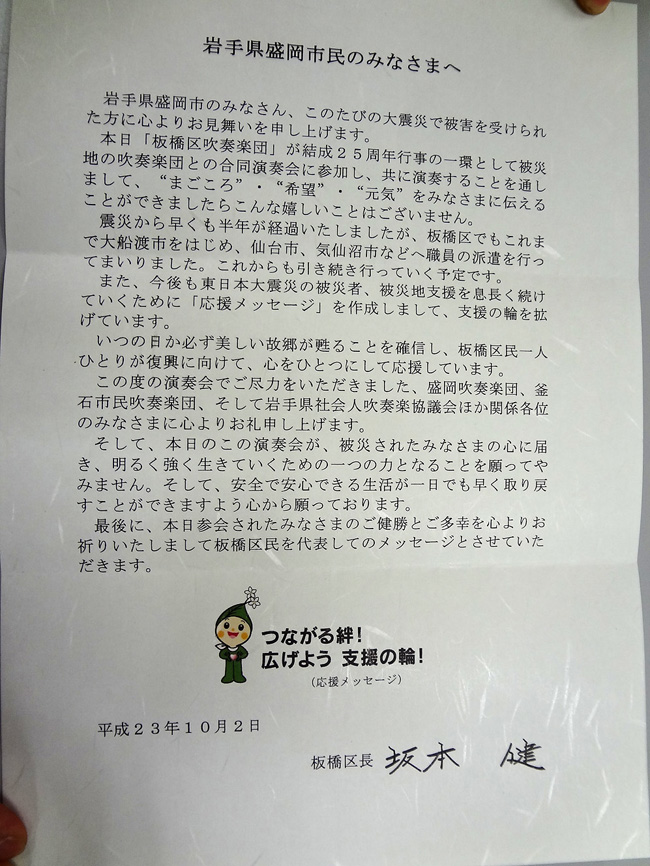 岩手県盛岡市民のみなさまへ
岩手県盛岡市のみなさん、このたびの大震災で被害を受けられ
た方に心よりお見舞いを申し上げます。
本日「板橋区吹奏楽団」が結成２５周年行事の一環として被災
地の吹奏楽団との合同演奏会に参加し、共に演奏することを通し
まして、“まごころ”・“希望”・“元気”をみなさまに伝える
ことができましたらこんな嬉しいことはございません。
震災から早くも半年が経過いたしましたが、板橋区でもこれま
で大船渡市をはじめ、仙台市、気仙沼市などへ職員の派遣を行っ
てまいりました。これからも引き続き行っていく予定です。
また、今後も東日本大震災の被災者、被災地支援を息長く続け
ていくために「応援メッセージ」を作成しまして、支援の輪を拡
げています。
いつの日か必ず美しい故郷が甦ることを確信し、板橋区民一人
ひとりが復興に向けて、心をひとつにして応援しています。
この度の演奏会でご尽力をいただきました、盛岡吹奏楽団、釜
石市民吹奏楽団、そして岩手県社会人吹奏楽協議会ほか関係各位
のみなさまに心よりお礼申し上げます。
そして、本日のこの演奏会が、被災されたみなさまの心に届
き、明るく強く生きていくための一つの力となることを願ってや
みません。そして、安全で安心できる生活が一日でも早く取り戻
すことができますよう心から願っております。
最後に、本日参会されたみなさまのご健勝とご多幸を心よりお
祈りいたしまして板橋区民を代表してのメッセージとさせていた
だきます。
つながる絆！
広げよう 支援の輪！
（応援メッセージ）
平成２３年１０月２日
板橋区長 坂本 健